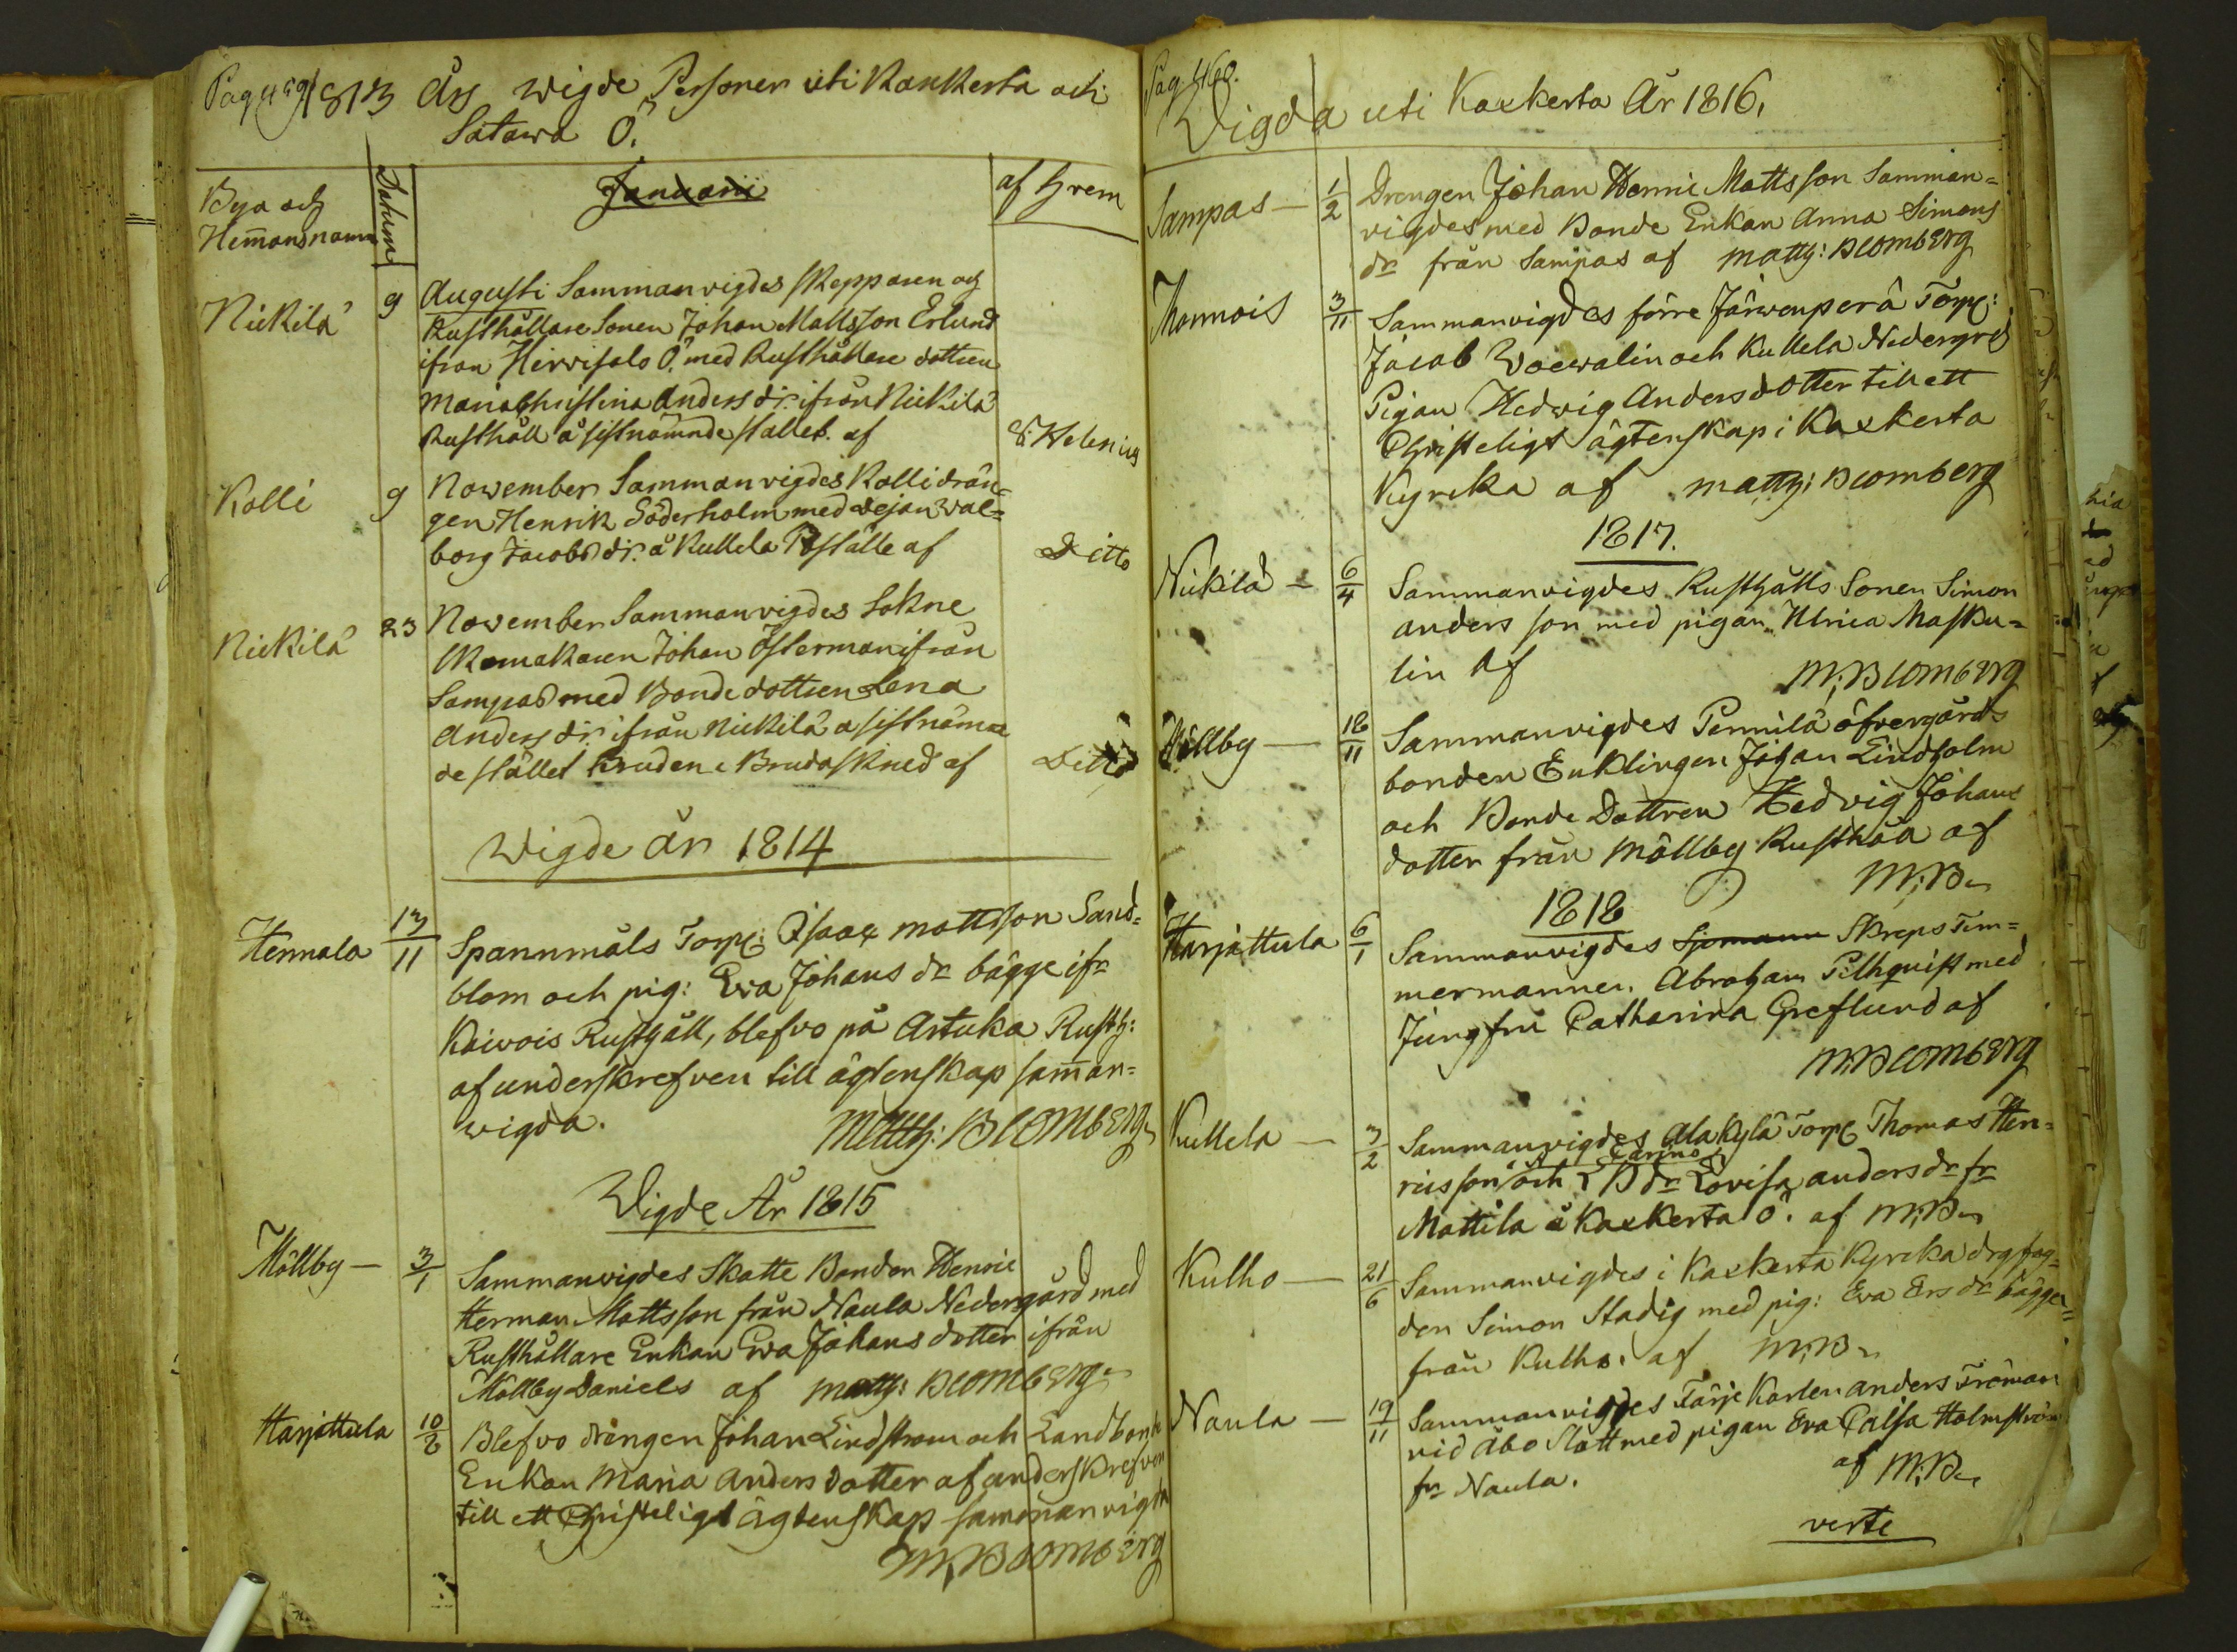 Pag 459 1813 Års Wigde Personer uti Kaxkerta och
Satawa Ö.
Bya och
Hem̄ansnamn
Datum
Januarii
af hvem
Nickilä 9 Augusti Sammanvigdes Skepparen och
Rusthållare Sonen Johan Mattsson Erlund
ifrån Hirvisalo Ö. med Rusthållare dottren
Maria Christina Anders dr. ifrån Nickilä
Rusthåll å sistnämnde stället. af Helenius
Kolli 9 November Sammanvigdes Kolli drän=
gen Henrik Söderholm med Pejan Wal=
borg Jacobs dr. å Kullela Boställe af Ditto
Nickilä 23 November Sammanvigdes Sokne
Skomakaren Johan Österman ifrån
Sampas med Bonde dottren Lena
Anders dr. ifrån Nickilä å sistnämn
de stället Bruden i Brudaskrud af Ditto
Wigde år 1814
Hennala 13/11 Spannmåls Torp: Isaac Mattsson Sand=
blom och pig: Eva Johans dr bägge ifr
Kaivois Rusthåll, blefvo på Artuka Rusth:
af underskrefven till ägtenskap sam̄an=
wigda. Matth: Blomberg
Wigde År 1815
Möllby — 3/1 Sammanvigdes Skatte Bonden Henric
Herman Mattsson från Naula Nedergård med
Rusthållare Enkan Eva Johans dotter ifrån
Möllby Daniels af Matth: Blomberg
Harjattula 10/6 Blefvo drängen Johan Lindstrom och Landbonde
Enkan Maria Anders dotter af underskrefven
till ett Christeligt ägtenskap sammanvigda
M. Blomberg
Pag. 460.
Vigda uti Kaxkerta År 1816.
Sampas — 1/2 Drengen Johan Henric Mattsson Samman=
vigdes med Bonde Enkan Anna Simons
dr från Sampas af Matth: Blomberg
Monnois 3/11 Sammanvigdes förre Järvenperä Torp:
Jacob Woewalin och Kullela Nedergrd
Pigan Hedvig Andersdotter till ett
Christeligt ägtenskap i Kaxkerta
Kyrcka af Matth: Blomberg
1817.
Nickilä — 6/4 Sammanvigdes Rusthålls Sonen Simon
Anders son med pigan Ulrica Masku=
lin af M: Blomberg
Möllby — 18/11 Sammanvigdes Pennilä öfvergårds
bonden Enklingen Johan Lindholm
och Bonde Dottren Hedvig Johans
dotter från Möllby Rusthåll af
M: B
1818
Harjattula 6/1 Sammanvigdes Sjömann Skeps Tim=
mermannen Abraham Pihlqvist med
Jungfru Catharina Greflund af
M: Blomberg
Kullela — 3/2 Sammanvigdes Alakylä Torp Thomas Hen=
Carin
ricsson och B dr Lovisa Anders dr fr
Mattila å Kaxkerta Ö. af M: B
Kulho — 21/6 Sammanvigdes i Kaxkerta Kyrcka drg fog=
den Simon Stadig med pig: Eva Ers dr bägge
från Kulho. af M: B
Naula — 19/11 Sammanvigdes Färje Karlen Anders Fröman
vid Åbo Slott med pigan Eva Caisa Holmström
fr Naula. af M: B
verte